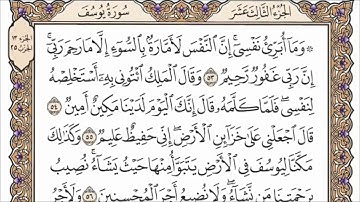 الجزء الثالث عشر
سورة يوسف
۞ وَمَآ أُبَرِّئُ نَفْسِىٓ ۚ إِنَّ ٱلنَّفْسَ لَأَمَّارَةٌۢ بِٱلسُّوٓءِ إِلَّا مَا رَحِمَ رَبِّىٓ ۚ
إِنَّ رَبِّى غَفُورٌ رَّحِيمٌ ٥٣ وَقَالَ ٱلْمَلِكُ ٱئْتُونِى بِهِۦٓ أَسْتَخْلِصْهُ
لِنَفْسِى ۖ فَلَمَّا كَلَّمَهُۥ قَالَ إِنَّكَ ٱلْيَوْمَ لَدَيْنَا مَكِينٌ أَمِينٌ ٥٤
قَالَ ٱجْعَلْنِى عَلَىٰ خَزَآئِنِ ٱلْأَرْضِ ۖ إِنِّى حَفِيظٌ عَلِيمٌ ٥٥ وَكَذَٰلِكَ
مَكَّنَّا لِيُوسُفَ فِى ٱلْأَرْضِ يَتَبَوَّأُ مِنْهَا حَيْثُ يَشَآءُ ۚ نُصِيبُ
بِرَحْمَتِنَا مَن نَّشَآءُ ۖ وَلَا نُضِيعُ أَجْرَ ٱلْمُحْسِنِينَ ٥٦ وَلَأَجْرُ
الجزء ١٣
الحزب ٢٥